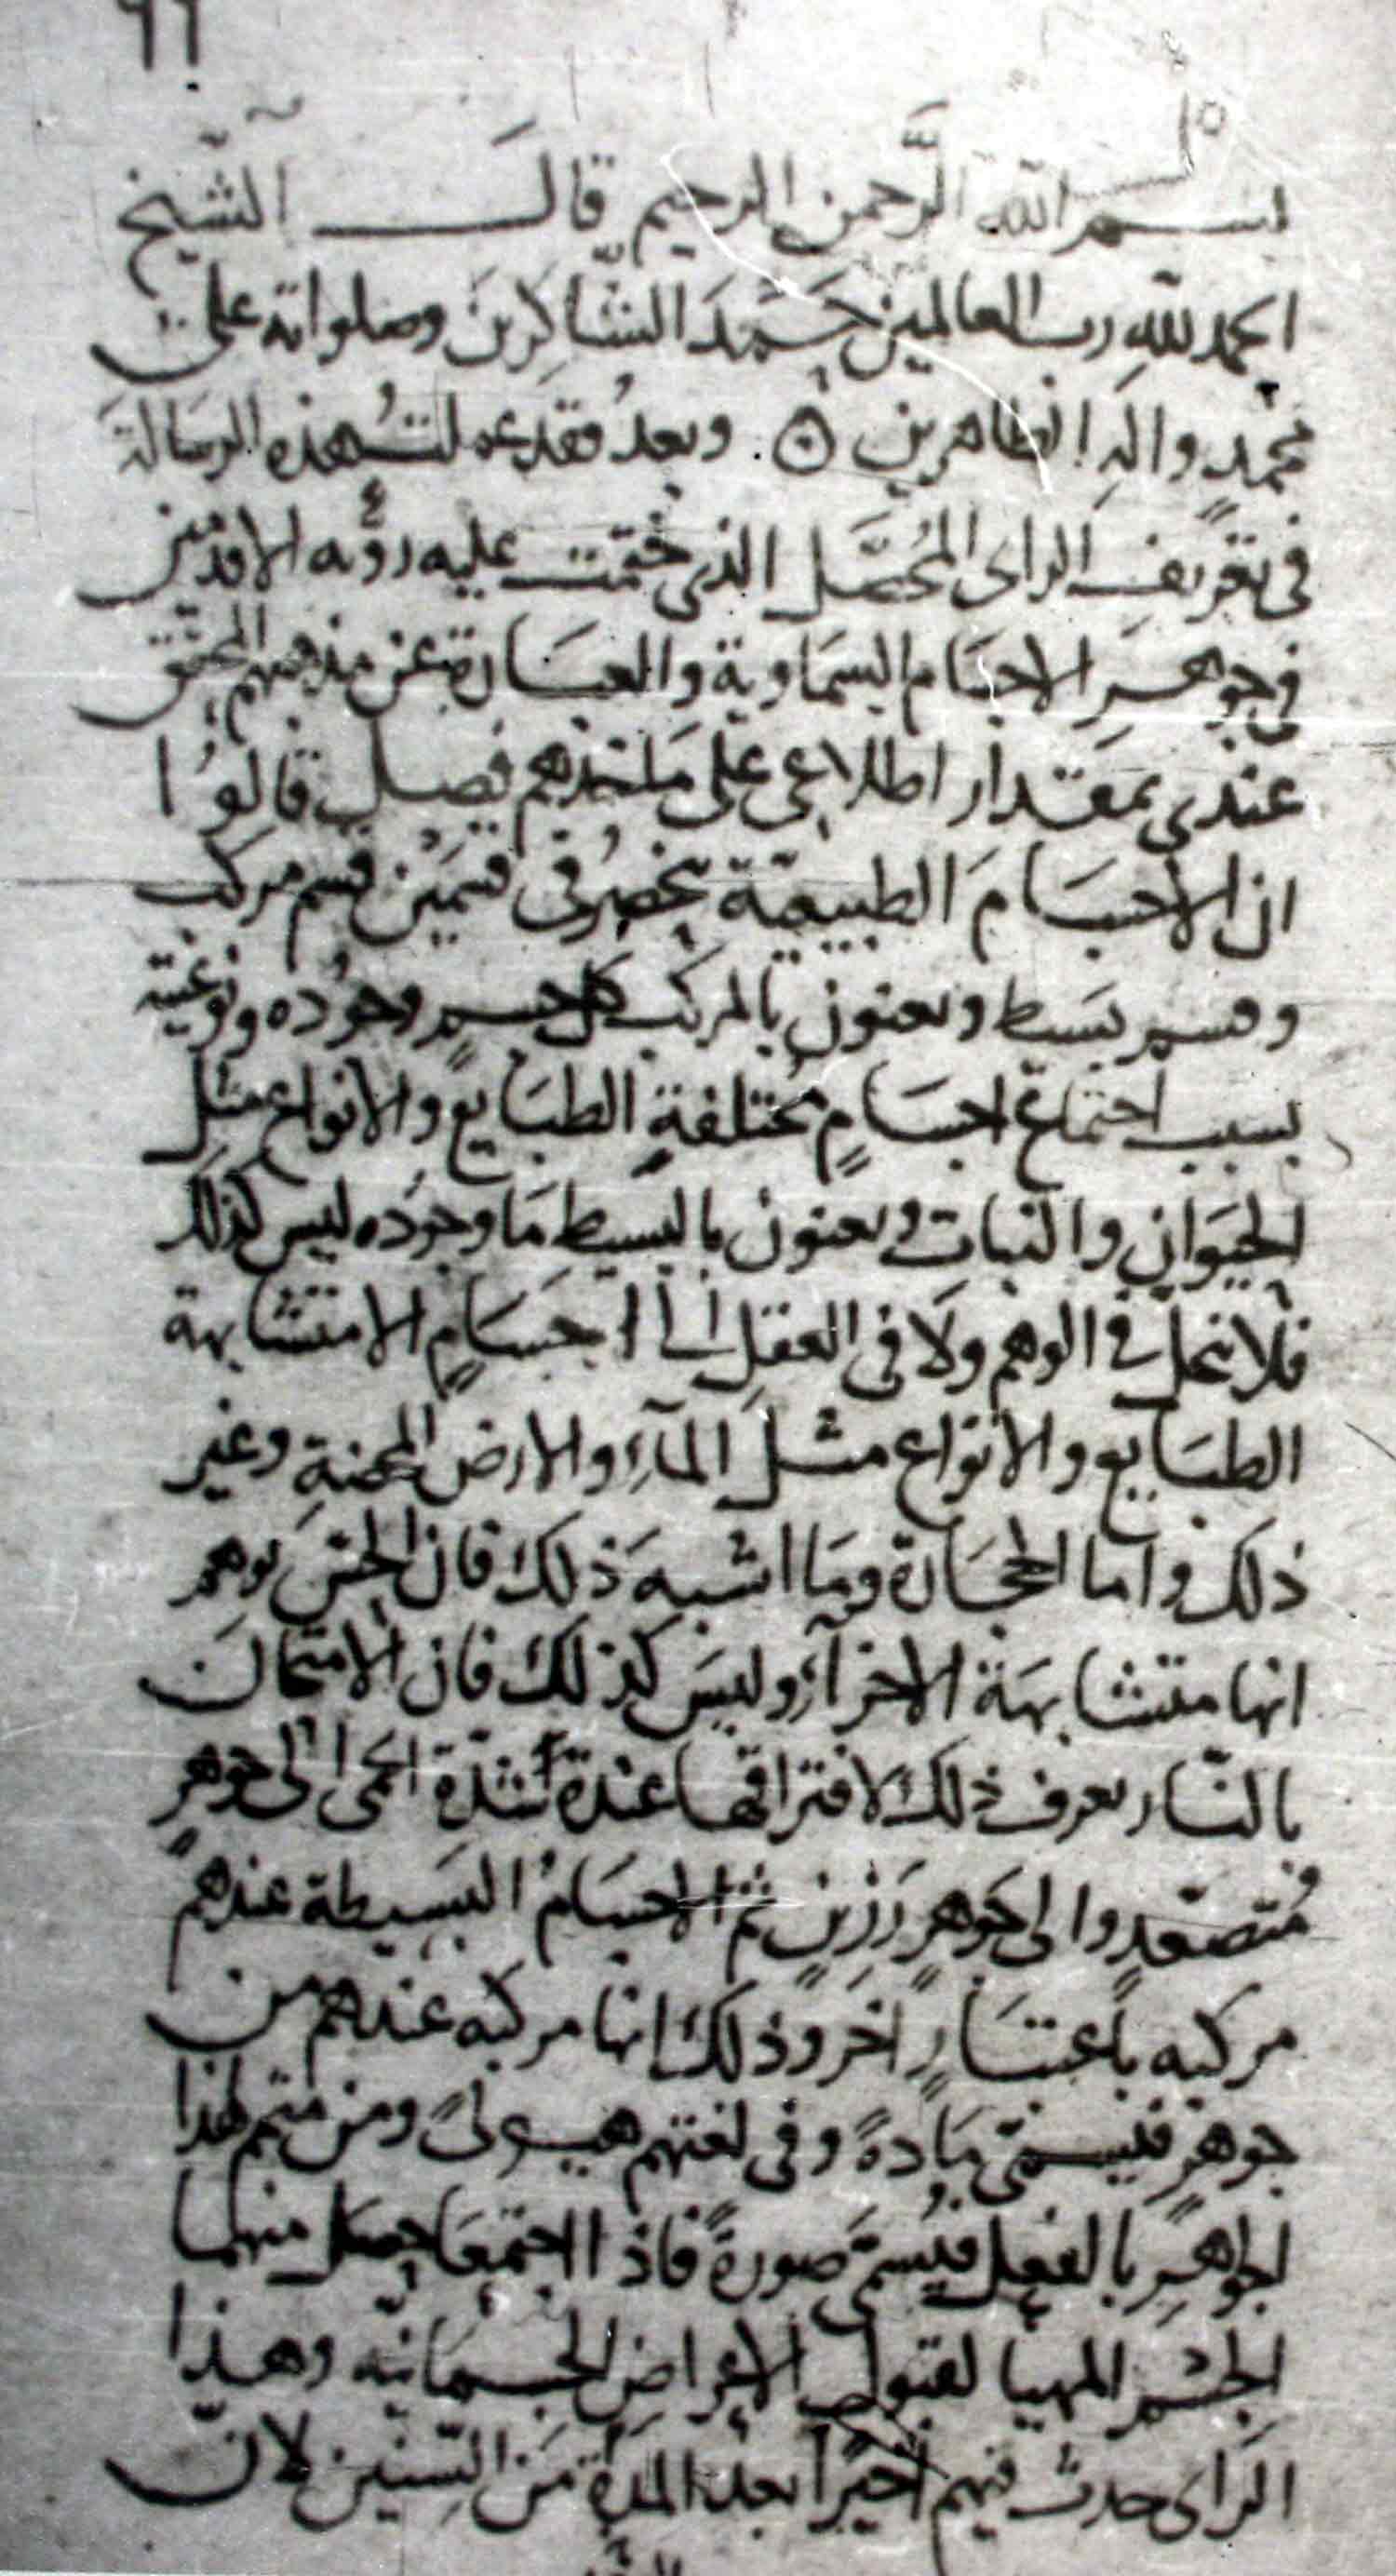 ٦٦
بسم الله الرحمن الرحيم قال الشيخ
الحمد لله رب العالمين حَمَدَ الشاكِرينَ وصلواته على
محمدٍ والهِ الطاهرين ۞ وبعدُ فقد علقتُ هذه الرسالة
فى تعريف الراى المُحصَّل الذى ختمت عليه رؤيه الاقدمين
فى جوهرِ الاجسام السماوية والعبارة عن مذهبهم المحقق
عندى بمقدار اطلاعى على ماخذهم فصل قالوا
ان الاجسامَ الطبيعيّة تنحصرُ فى قسمَيْن قسم مركب
وقسم بسَيط ويعنون بالمركب كل جسم وجوده ونوعيته
بسبب اجتماع اجسامٍ مختلفةِ الطبايع والانواع مثل
الحيَوانِ والنبات ويعنون بالبسيطِ مَا وجوُده ليس كذلك
فلا ينحل فى الوهم ولَا فى العقلِ الى اجسَامٍ الا متشابهة
الطبَايع والانواع مثل المآءِ والارض المحضةِ وغير
ذلك واما الحجَارة ومَا اشبهَ ذلك فان الحسَّ يوهم
انها متشابهَة الاجزآءِ وليسَ كذلك فان الامتحان
بالنّار يعرف ذلك لافتراقها عندة شدّة الحمى الى جوهرٍ
مُتصعّدٍ والى جَوهرٍ رَزينٍ ثم الاجسَامُ البسَيطة عندهم
مركبه باعتبَارٍ اخر وذلك انها مركبه عندهم من
جوهرٍ فيسمىّ مَادةً وفى لغتهم هيولىً ومن متمم لهذا
الجوهرِ بالفعل فيُسمىَّ صورةً فاذا اجتمعَا حصَل منهما
الجسْم المهيا لقبول الاعراض الجسمانيّه وهذا
الرَاىَ حدث فيهم اخيَراً بعد المدة مَن السِّنين لانّ